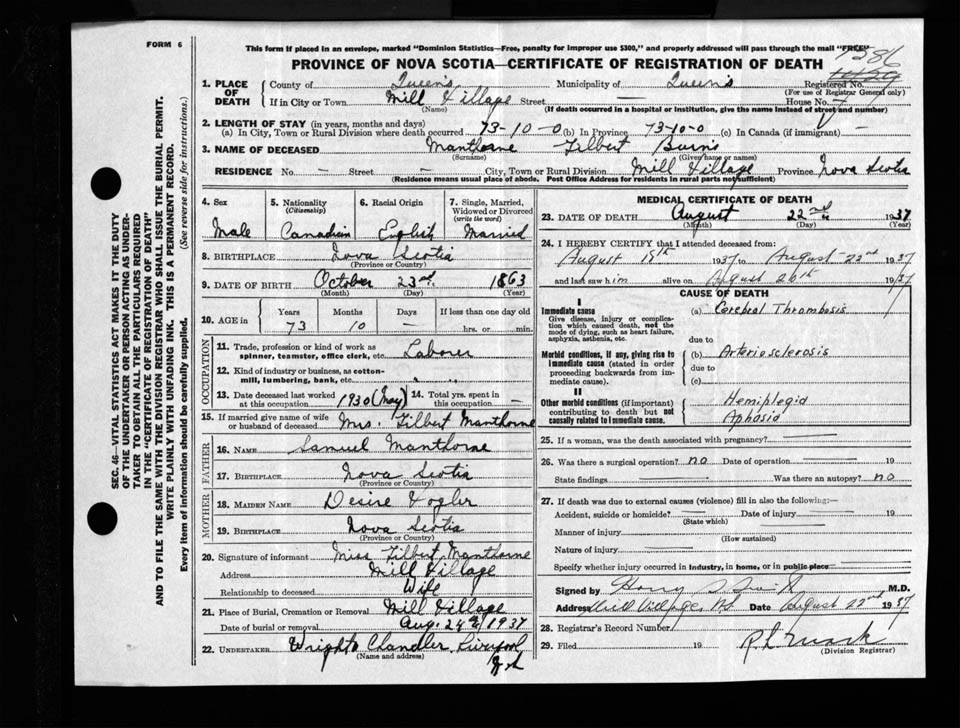 FORM 6
This form if placed in an envelope, marked "Dominion Statistics—Free, penalty for improper use $300," and properly addressed will pass through the mail "FREE"
PROVINCE OF NOVA SCOTIA—CERTIFICATE OF REGISTRATION OF DEATH
1. PLACE OF DEATH
County of Queen's Municipality of Queen's Registered No.
(For use of Registrar General only)
If in City or Town Mill Village Street — House No.
(Name) (If death occurred in a hospital or institution, give the name instead of street and number)
2. LENGTH OF STAY (in years, months and days)
(a) In City, Town or Rural Division where death occurred 73-10-0 (b) In Province 73-10-0 (c) In Canada (if immigrant) —
3. NAME OF DECEASED Manthorne Filbert Burns
(Surname) (Given name or names)
RESIDENCE No. — Street — City, Town or Rural Division Mill Village Province Nova Scotia
(Residence means usual place of abode. Post Office Address for residents in rural parts not sufficient)
4. Sex 5. Nationality (Citizenship) 6. Racial Origin 7. Single, Married, Widowed or Divorced (write the word)
Male Canadian English Married
8. BIRTHPLACE Nova Scotia
(Province or Country)
9. DATE OF BIRTH October 23rd 1863
(Month) (Day) (Year)
10. AGE in Years Months Days If less than one day old
73 10 — hrs. or min.
OCCUPATION
11. Trade, profession or kind of work as spinner, teamster, office clerk, etc. Laborer
12. Kind of industry or business, as cotton-mill, lumbering, bank, etc.
13. Date deceased last worked at this occupation 1930 (May) 14. Total yrs. spent in this occupation —
15. If married give name of wife or husband of deceased Mrs. Filbert Manthorne
FATHER
16. NAME Samuel Manthorne
17. BIRTHPLACE Nova Scotia
(Province or Country)
MOTHER
18. MAIDEN NAME Desire Vogler
19. BIRTHPLACE Nova Scotia
(Province or Country)
20. Signature of informant Filbert Manthorne
Address Mill Village
Relationship to deceased Wife
21. Place of Burial, Cremation or Removal Mill Village
Date of burial or removal Aug. 1937
22. UNDERTAKER Chandler, Liverpool
(Name and address)
MEDICAL CERTIFICATE OF DEATH
23. DATE OF DEATH August 22nd 1937
(Month) (Day) (Year)
24. I HEREBY CERTIFY that I attended deceased from:
August 1937 to August 22nd 1937
and last saw him alive on August 1937
CAUSE OF DEATH
I
Immediate cause
Give disease, injury or complication which caused death, not the mode of dying, such as heart failure, asphyxia, asthenia, etc.
(a) Cerebral Thrombosis
due to
Morbid conditions, if any, giving rise to immediate cause (stated in order proceeding backwards from immediate cause).
(b) Arteriosclerosis
due to
(c)
II
Other morbid conditions (if important) contributing to death but not causally related to immediate cause.
Hemiplegia
Aphasia
25. If a woman, was the death associated with pregnancy?
26. Was there a surgical operation? no Date of operation 19
State findings Was there an autopsy? no
27. If death was due to external causes (violence) fill in also the following:—
Accident, suicide or homicide? Date of injury 19
(State which)
Manner of injury
(How sustained)
Nature of injury
Specify whether injury occurred in industry, in home, or in public place
Signed by M.D.
Address Mill Village, NS Date August 22nd 1937
28. Registrar's Record Number
29. Filed 19
(Division Registrar)
SEC. 46—VITAL STATISTICS ACT MAKES IT THE DUTY
OF THE UNDERTAKER OR PERSON ACTING AS UNDER-
TAKER TO OBTAIN ALL THE PARTICULARS REQUIRED
IN THE "CERTIFICATE OF REGISTRATION OF DEATH"
AND TO FILE THE SAME WITH THE DIVISION REGISTRAR WHO SHALL ISSUE THE BURIAL PERMIT.
WRITE PLAINLY WITH UNFADING INK. THIS IS A PERMANENT RECORD.
Every item of information should be carefully supplied. (See reverse side for instructions.)